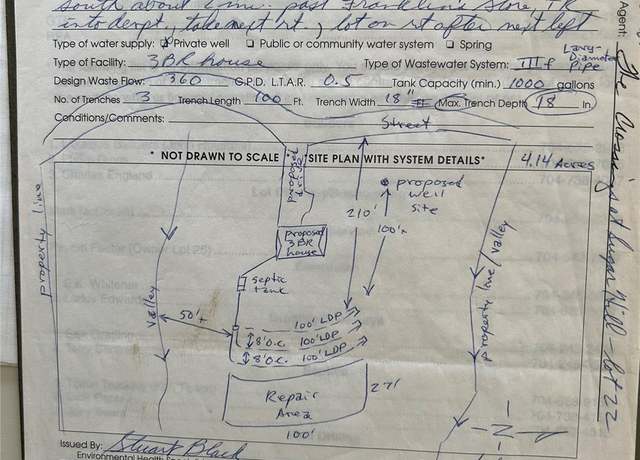 South about 2 mi. past Franklin's Store, TR
into dev't, take next rt., lot on rt after next left
Type of water supply: Private well Public or community water system Spring
Type of Facility: 3BR house Type of Wastewater System: III f Large Diameter Pipe
Design Waste Flow: 360 G.P.D. L.T.A.R. 0.5 Tank Capacity (min.) 1000 gallons
No. of Trenches 3 Trench Length 100 Ft. Trench Width 18" Max. Trench Depth 18 In.
Conditions/Comments:
Street
* NOT DRAWN TO SCALE SITE PLAN WITH SYSTEM DETAILS*
4.14 Acres
proposed drive
proposed well site
210'
100'+
proposed 3BR house
property line
valley
property line/valley
septic tank
50'+
100' LDP
8' O.C. 100' LDP
8' O.C. 100' LDP
Repair Area
27'
100'
N
Issued By: Stuart Black
Environmental Health
Agent:
The Crossings at Sugar Hill - Lot 22